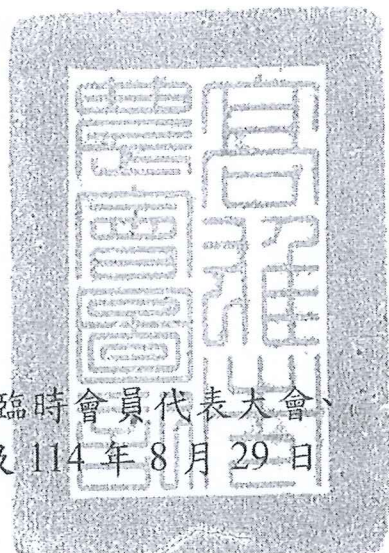 高雄市
農會圖
臨時會員代表大會、
114年8月29日